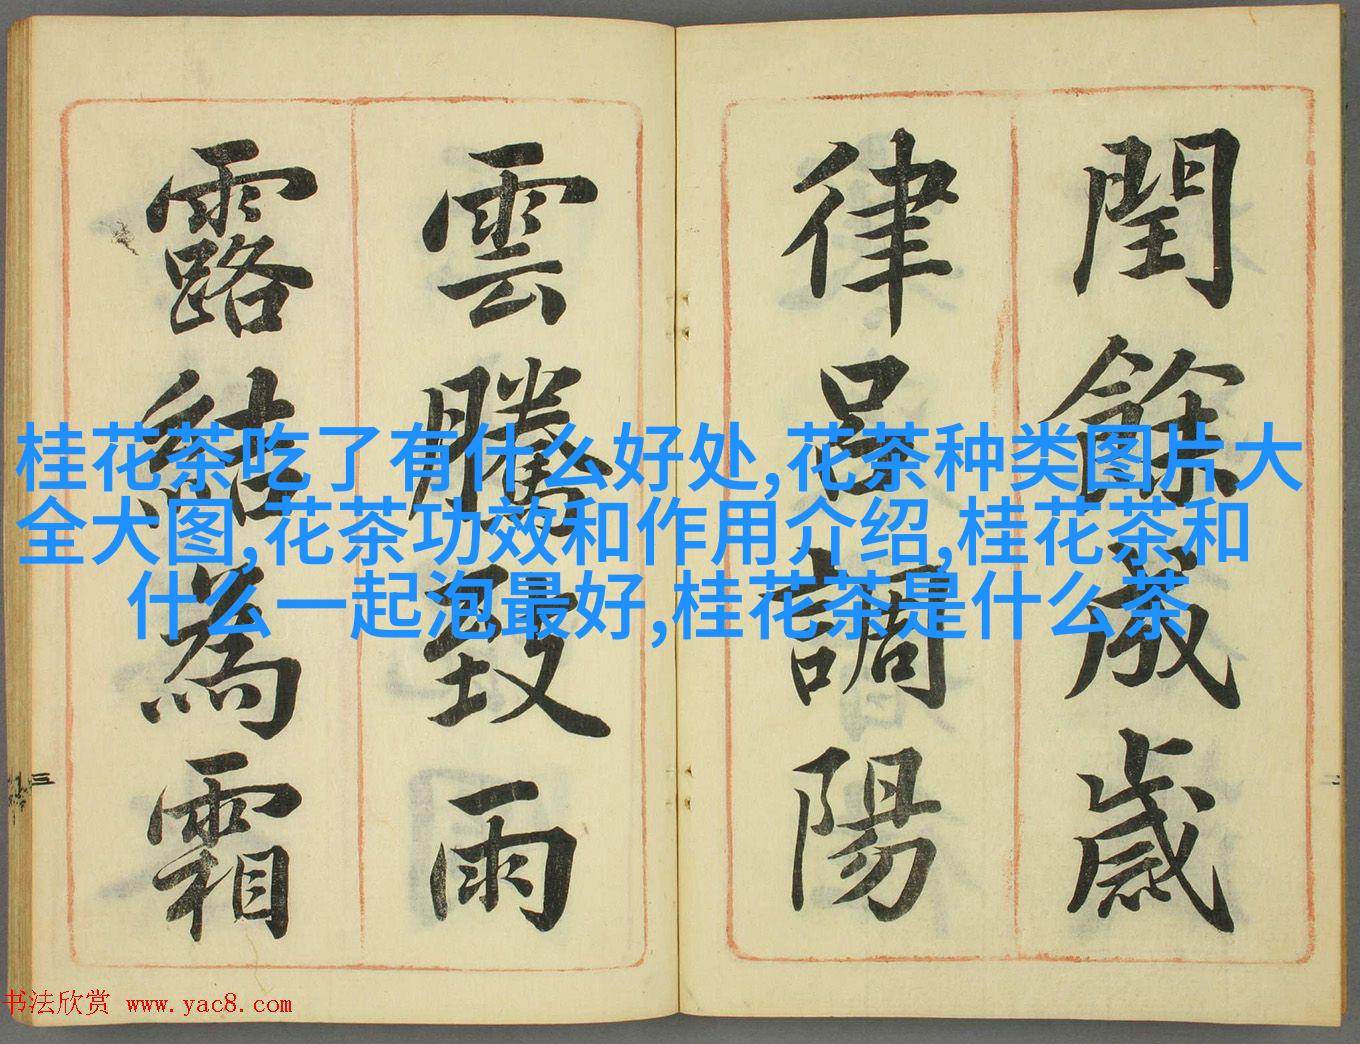 閏餘成歲
律呂調陽
雲騰致雨
露結為霜
桂花茶吃了有什么好处,花茶种类图片大
全大图,花茶功效和作用介绍,桂花茶和
什么一起泡最好,桂花茶是什么茶
三
二
书法欣赏 www.yac8.com